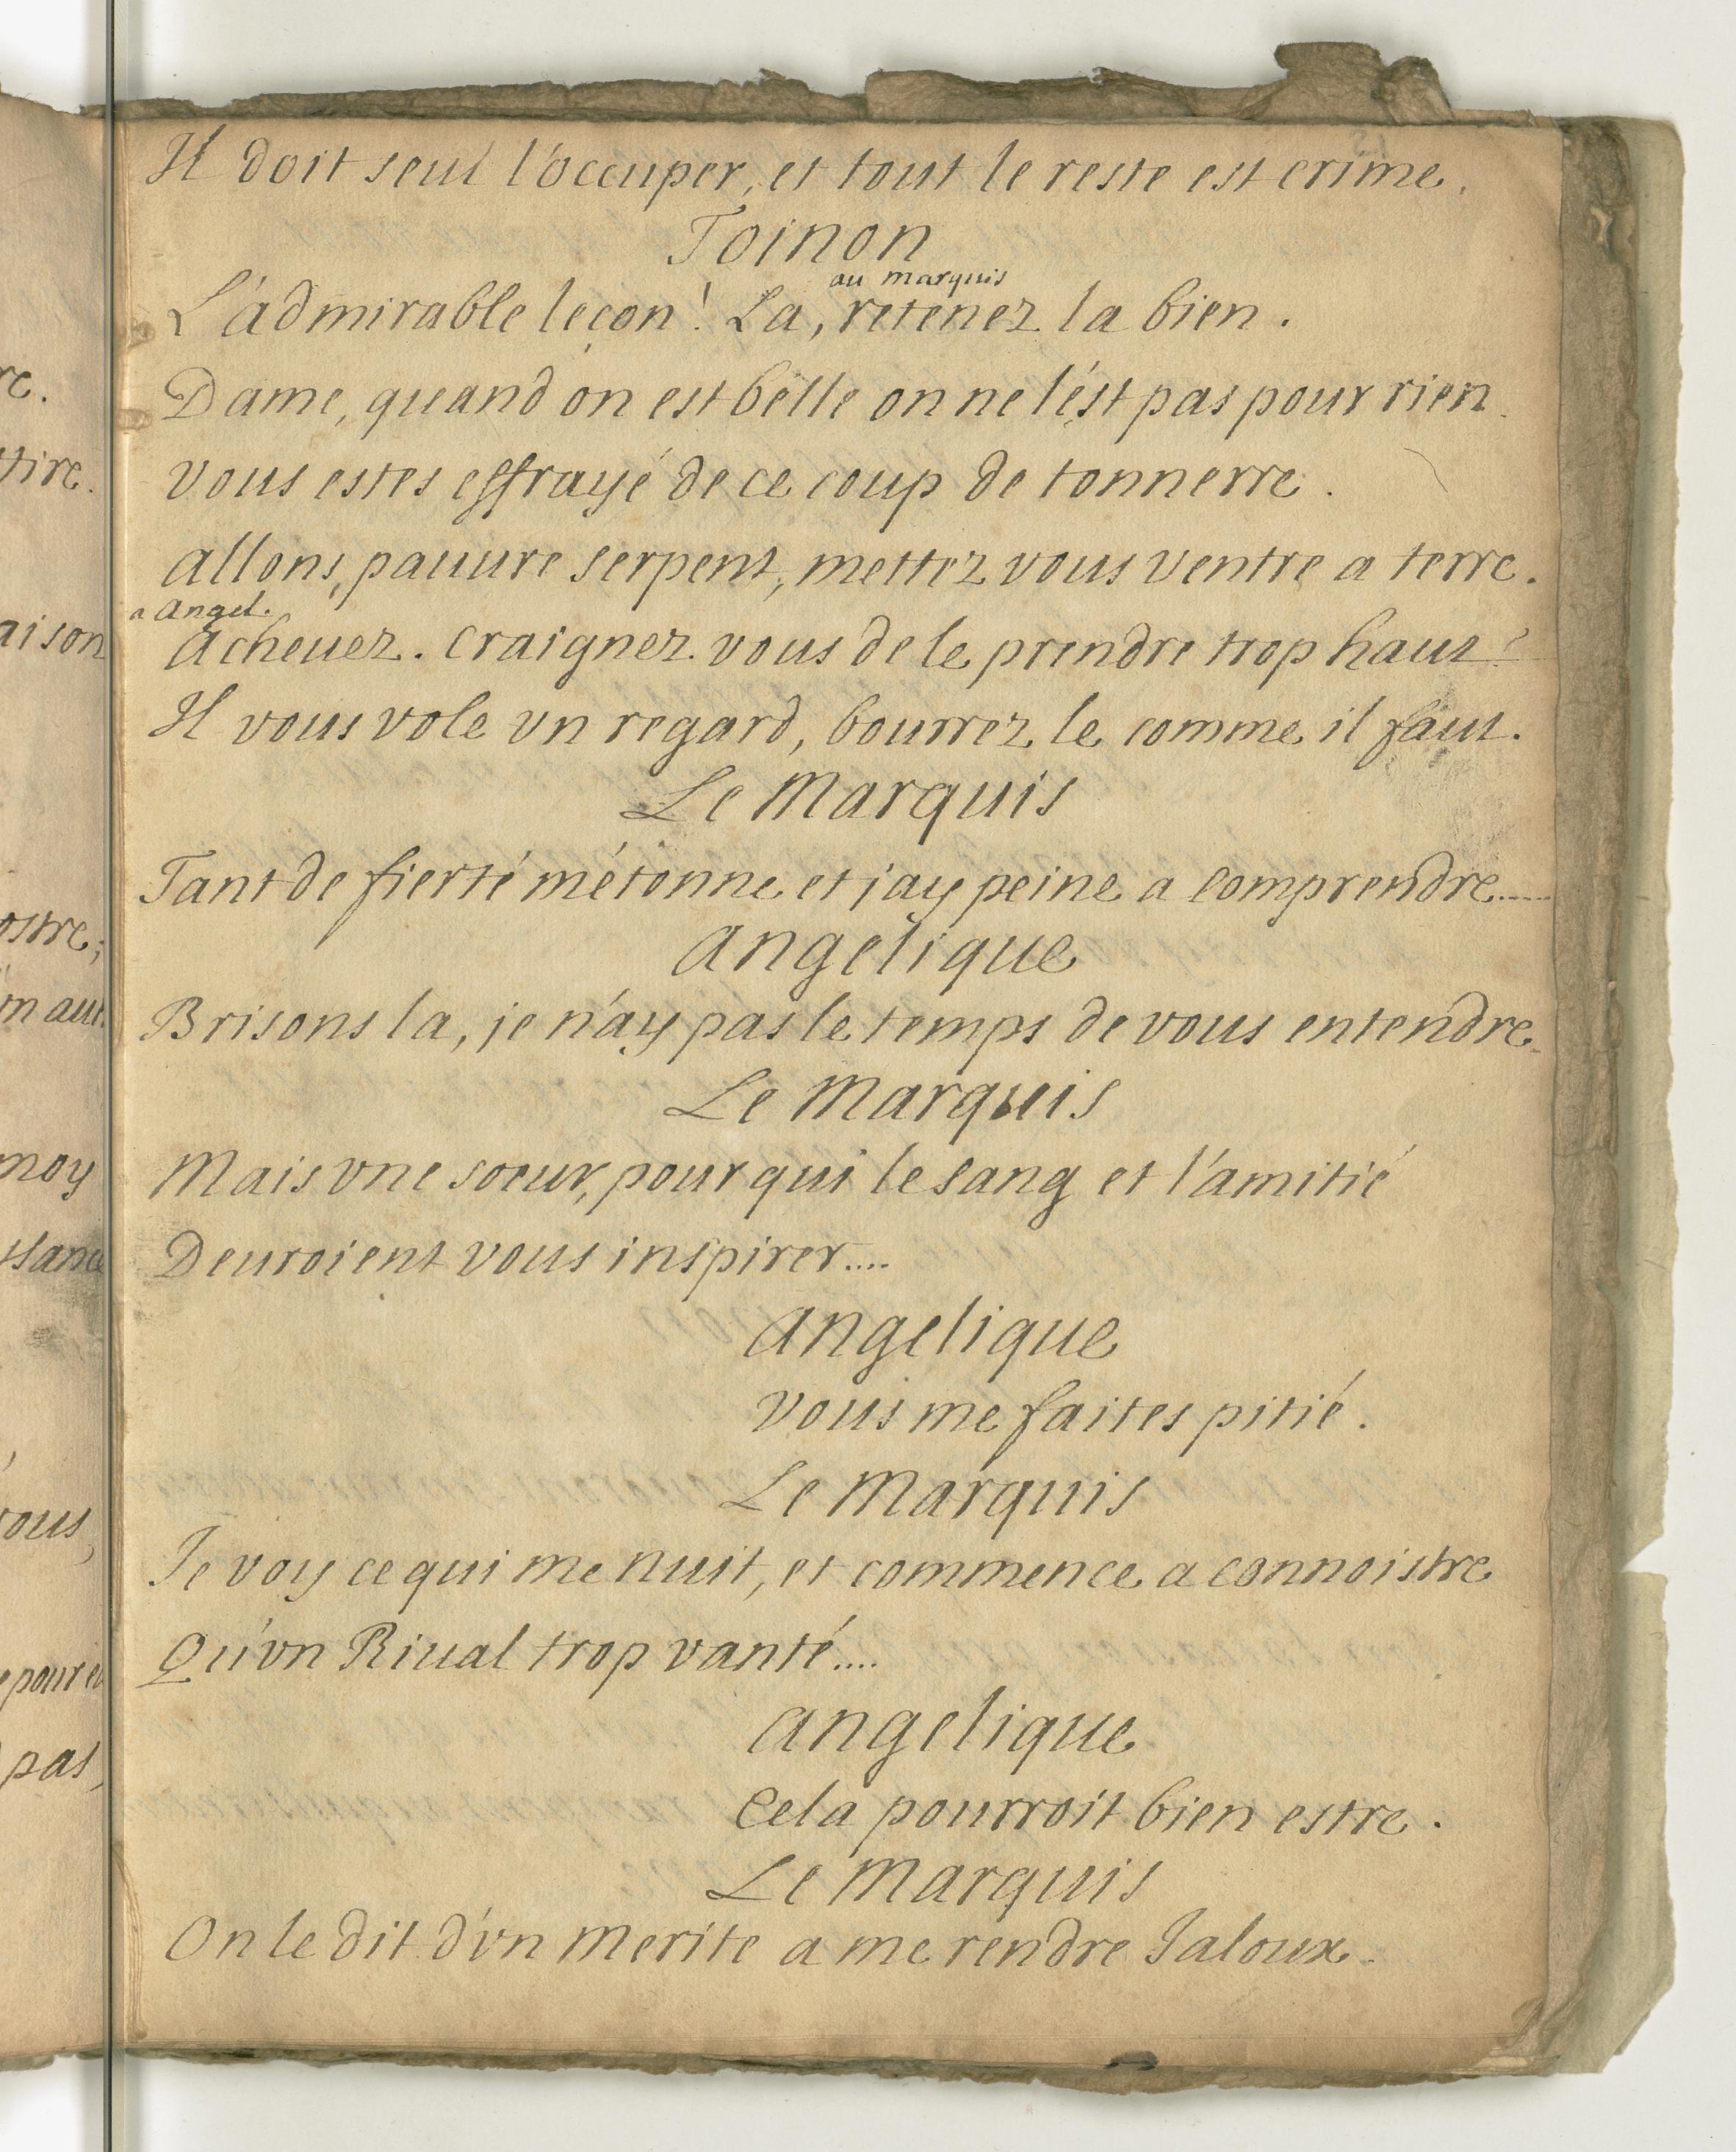 Il doit seul l'occuper, et tout le reste est crime.
Toinon
au marquis
L'admirable leçon! La, retenez la bien.
Dame, quand on est belle on ne l'est pas pour rien.
vous estes effrayé de ce coup de tonnerre.
allons, pauure serpent, mettez vous ventre a terre.
a Angel.
acheuez. craignez vous de le prendre trop haut?
Il vous vole vn regard, bourrez le comme il faut.
Le Marquis
Tant de fierté m'étonne et j'ay peine a comprendre.....
angelique
Brisons la, je n'ay pas le temps de vous entendre.
Le Marquis
Mais vne soeur, pour qui le sang et l'amitié
Deuroient vous inspirer....
angelique
vous me faites pitié.
Le Marquis
Je voy ce qui me nuit, et commence a connoistre
Qu'vn Riual trop vanté....
angelique
Cela pourroit bien estre.
Le Marquis
On le dit d'vn merite a me rendre Jaloux.